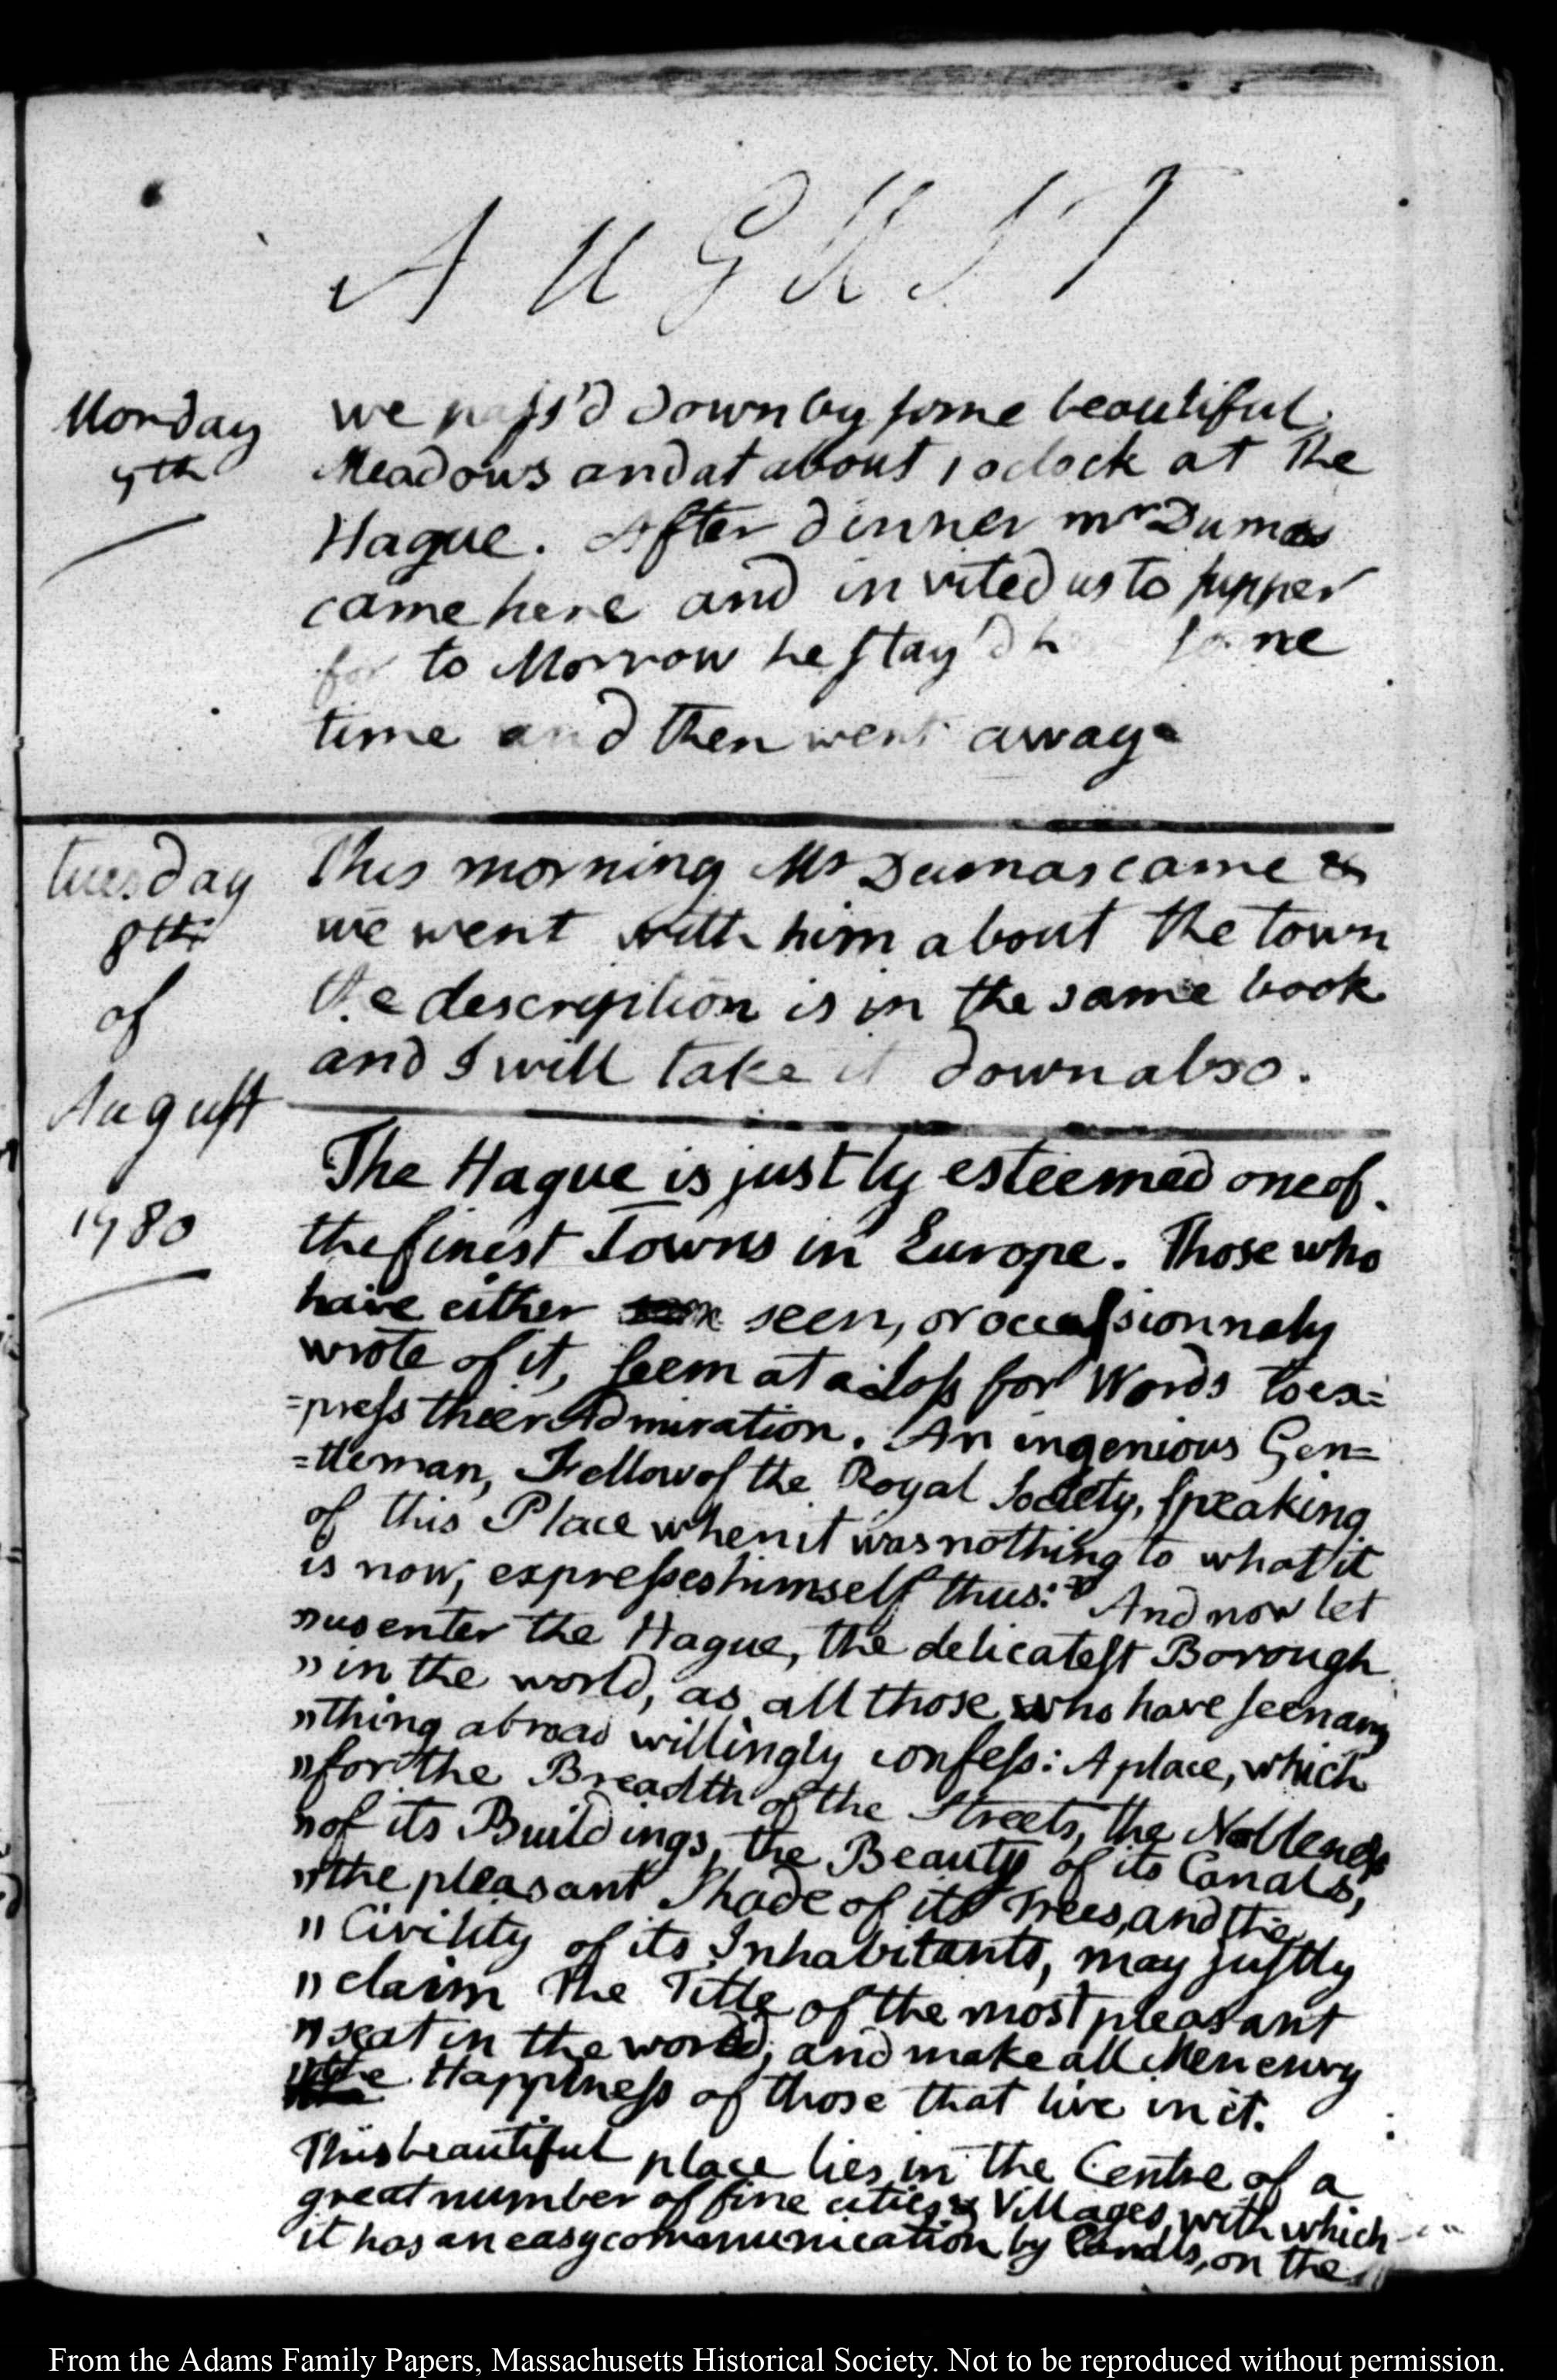 AUGUST
Monday
7th
we pass'd down by some beautiful
Meadows and at about 1 oclock at the
Hague. After dinner mr Dumas
came here and invited us to supper
for to Morrow he stay'd some
time and then went away
Tuesday
8th
of
August
1780
This morning Mr Dumas came &
we went with him about the town
the description is in the same book
and I will take it down also.
The Hague is justly esteemed one of
the finest Towns in Europe. Those who
have either seen, or occassionnaly
wrote of it, seem at a loss for Words to ex=
=press their Admiration. An ingenious Gen=
=tleman, Fellow of the Royal Society, speaking
of this Place when it was nothing to what it
is now, expresses himself thus: " And now let
" us enter the Hague, the delicatest Borough
" in the world, as all those who have seen any
" thing abroad willingly confess: A place, which
" for the Breadth of the Streets, the Nobleness
" of its Buildings, the Beauty of its Canals,
" the pleasant Shade of its Trees, and the
" Civility of its Inhabitants, may justly
" claim the Title of the most pleasant
" seat in the world, and make all Men envy
" the Happiness of those that live in it.
This beautiful place lies in the Centre of a
great number of fine cities & Villages, with which
it has an easy communication by Canals, on the
From the Adams Family Papers, Massachusetts Historical Society. Not to be reproduced without permission.